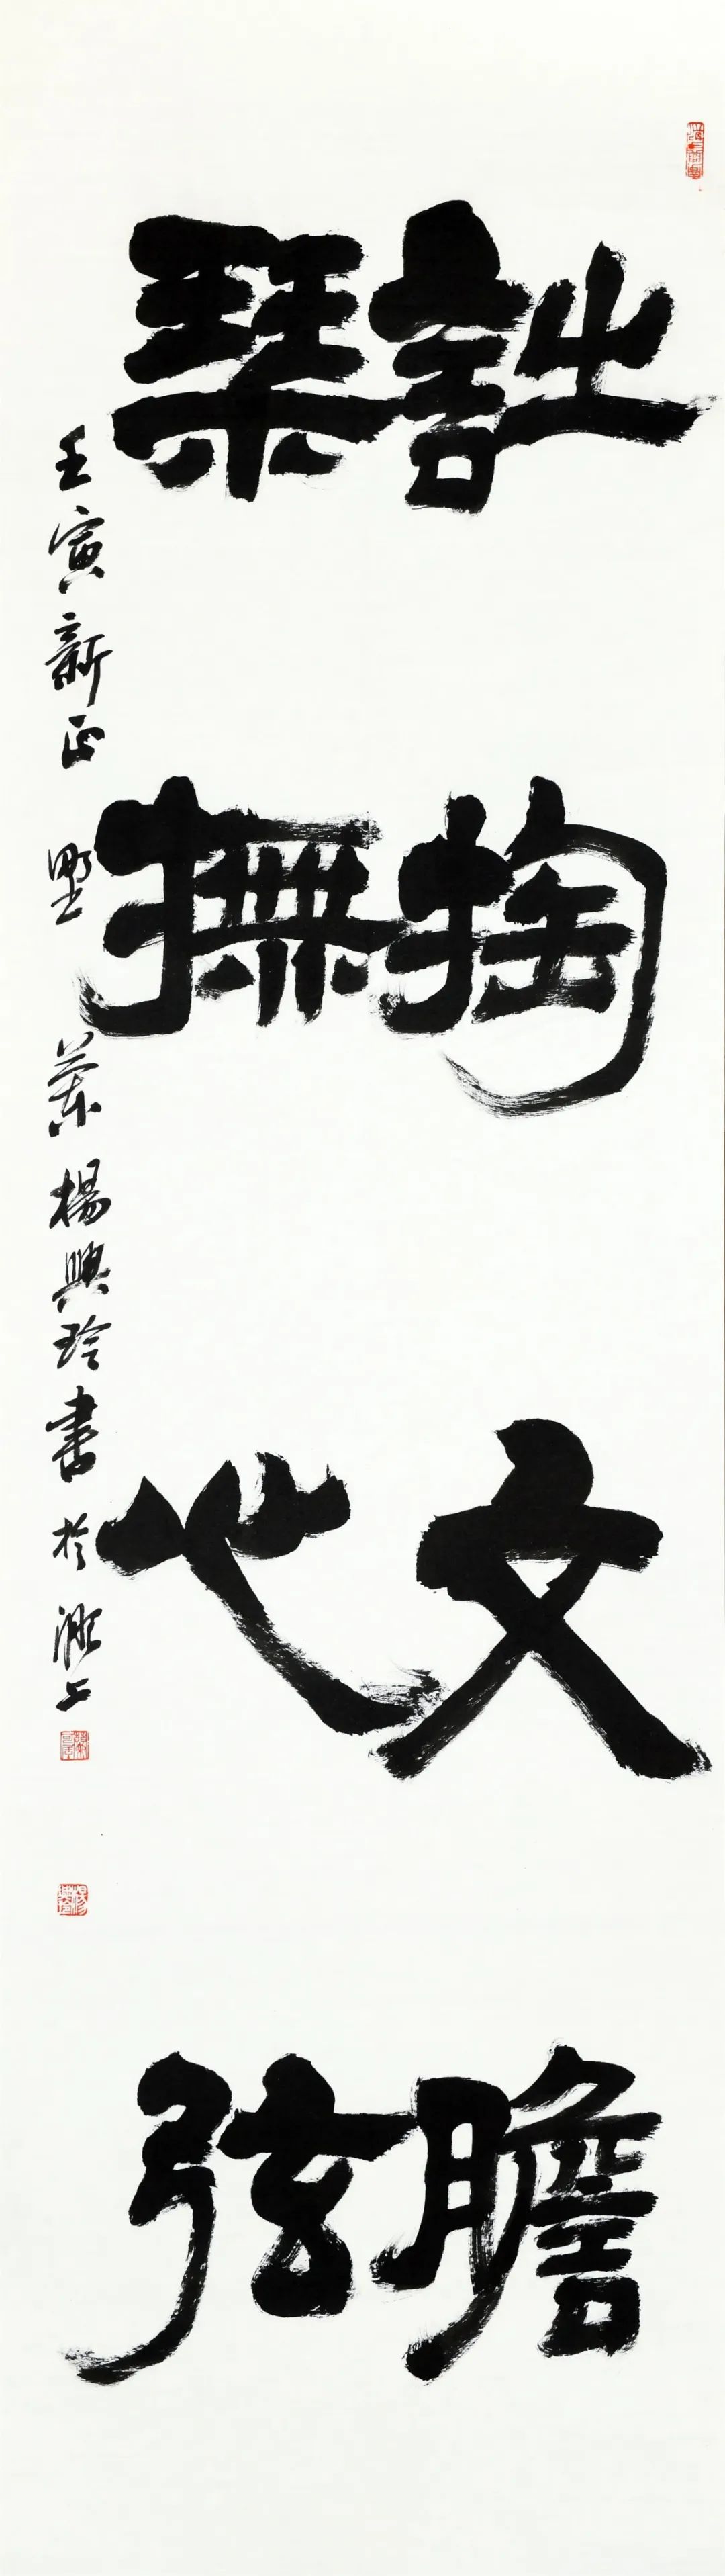 詩掏文膽
琴撫心弦
壬寅新正 野 楊興玲書於 上